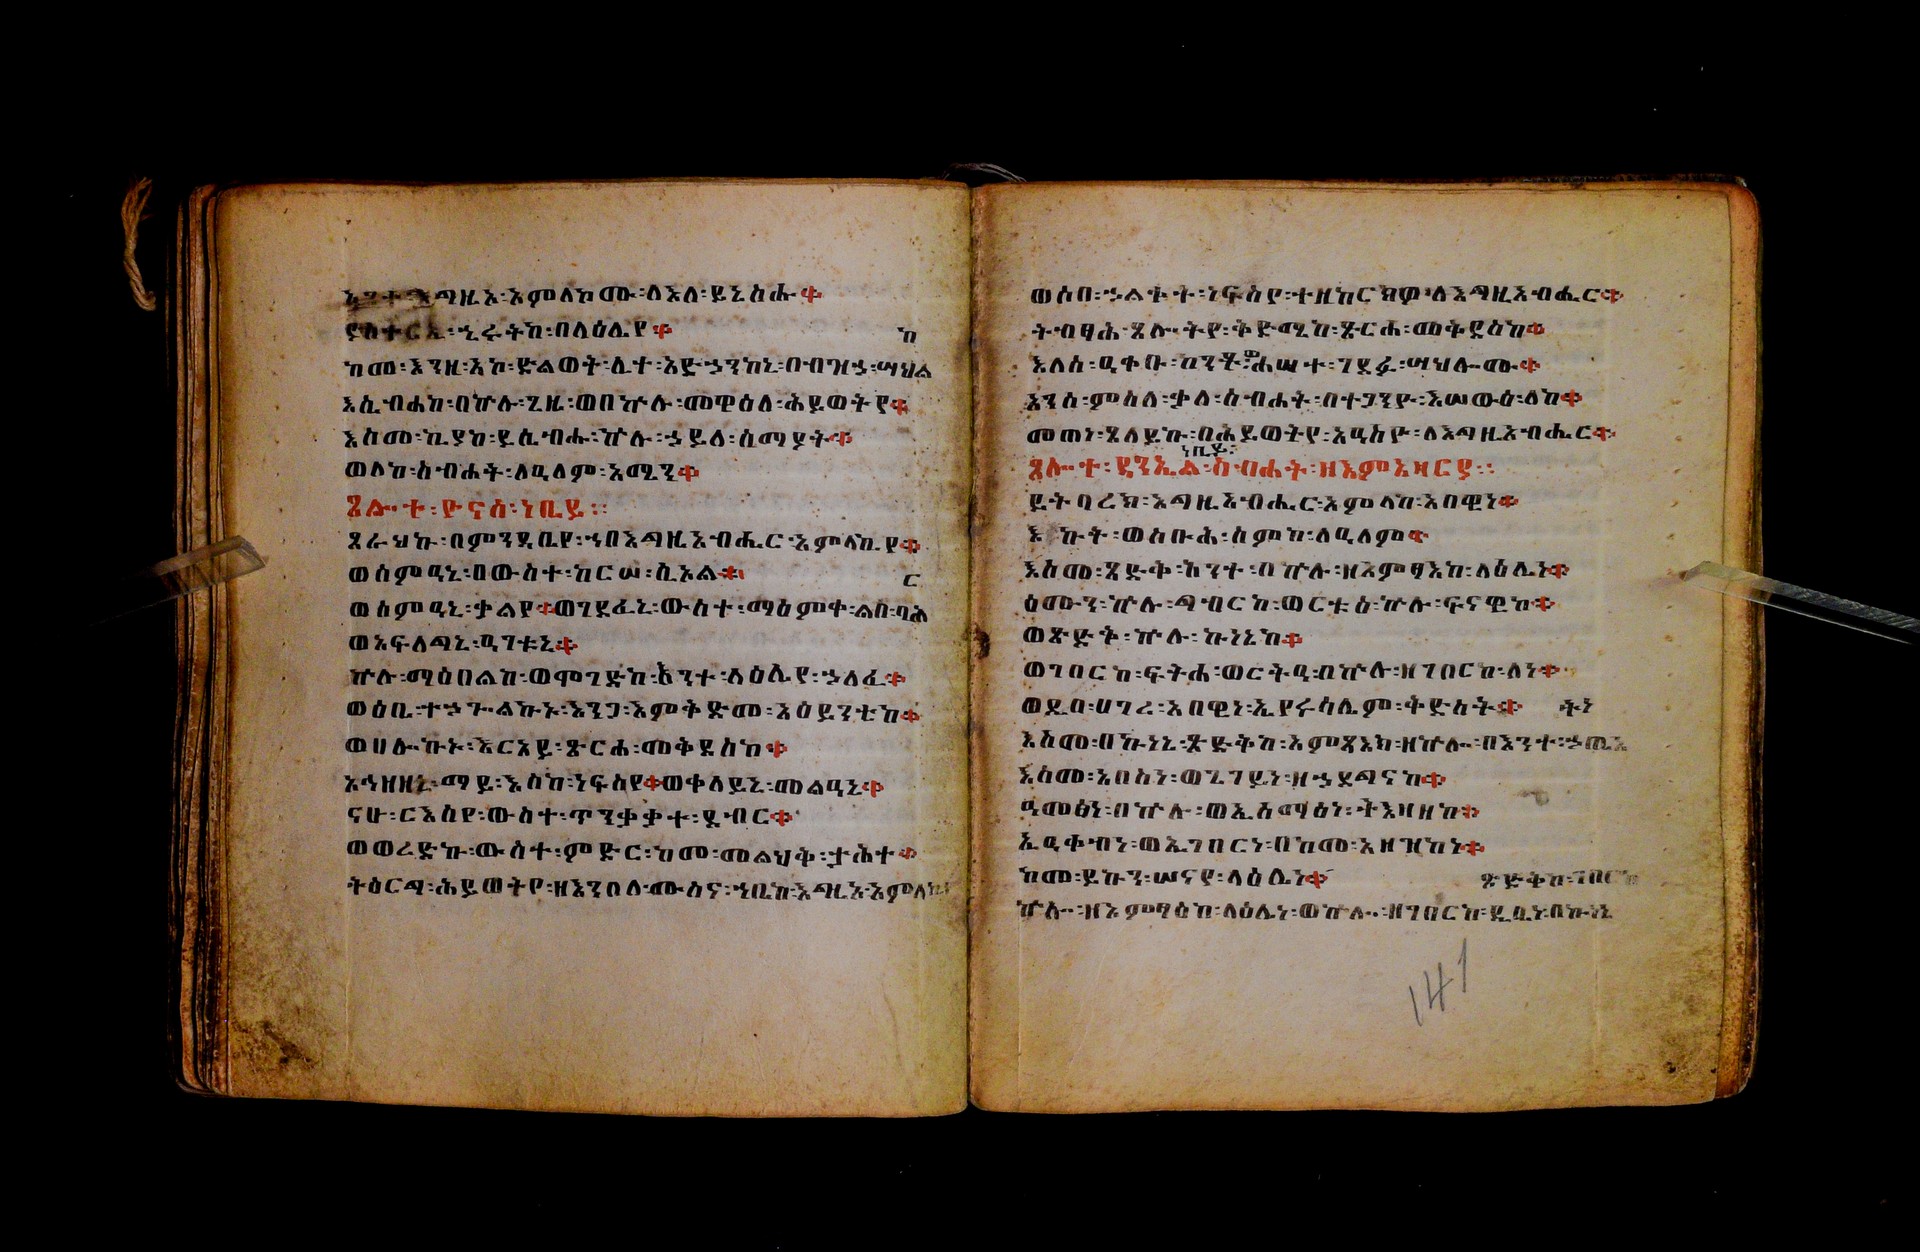 አንተ፡እግዚአ፡አምላኮሙ፡ለእለ፡ይኔስሑ።
ያስተርኢ፡ኂሩትከ፡በላዕሌየ። ከ
ከመ፡እንዘ፡አኮ፡ድልወት፡ሊተ፡አድኃንከኒ፡በብዝኃ፡ሣህል
እሴብሐከ፡በኵሉ፡ጊዜ፡ወበኵሉ፡መዋዕለ፡ሕይወትየ።
እስመ፡ኪያከ፡ይሴብሑ፡ኵሉ፡ኃይለ፡ሰማያት።
ወለከ፡ስብሐት፡ለዓለም፡አሜን።
ጸሎተ፡ዮናስ፡ነቢይ።
ጸራህኩ፡በምንዳቤየ፡ኀበ፡እግዚአብሔር፡አምላኪየ።
ወሰምዓኒ፡በውስተ፡ከርሠ፡ሲኦል። ር
ወሰምዓኒ፡ቃልየ።ወገደፈኒ፡ውስተ፡ማዕምቀ፡ልበ፡ባሕ
ወአፍለግኒ፡ዓገቱኒ።
ኵሉ፡ማዕበልከ፡ወሞገድከ፡እንተ፡ላዕሌየ፡ኃለፈ።
ወዕቤ፡ተኃጐልኩኑ፡እንጋ፡እምቅድመ፡አዕይንቲከ።
ወሀሎኩኑ፡እርአይ፡ጽርሐ፡መቅደስከ።
አኀዘዘኒ፡ማይ፡እስከ፡ነፍስየ።ወቀላይኒ፡መልዓኒ።
ናሁ፡ርእስየ፡ውስተ፡ጥንቃቃተ፡ደብር።
ወወረድኩ፡ውስተ፡ምድር፡ከመ፡መልህቅ፡ታሕተ።
ትዕርግ፡ሕይወትየ፡ዘእንበለ፡ሙስና፡ኀቤከ፡እግዚአ፡አምላኪ
ወሶበ፡ኃልቀት፡ነፍስየ፡ተዘከርክዎ፡ለእግዚአብሔር።
ትብፃሕ፡ጸሎትየ፡ቅድሜከ፡ጽርሐ፡መቅደስከ።
እለሰ፡ዓቀቡ፡ከንቶ፡ወሐሠተ፡ገደፉ፡ሣህሎሙ።
እንሰ፡ምስለ፡ቃለ፡ስብሐት፡በተጋንዮ፡እሠውዕ፡ለከ።
መጠነ፡ጸለይኩ፡በሕይወትየ፡አዓስዮ፡ለእግዚአብሔር።
ነቢይ፡
ጸሎተ፡ዳንኤል፡ስብሐት፡ዘእምአዛርያ።
ይትባረክ፡እግዚአብሔር፡አምላከ፡አበዊነ።
እኩት፡ወስቡሕ፡ስምከ፡ለዓለም።
እስመ፡ጻድቅ፡አንተ፡በኵሉ፡ዘአምፃእከ፡ላዕሌነ።
ዕሙን፡ኵሉ፡ግብርከ፡ወርቱዕ፡ኵሉ፡ፍናዊከ።
ወጽድቅ፡ኵሉ፡ኩነኔከ።
ወገበርከ፡ፍትሐ፡ወርትዓ፡በኵሉ፡ዘገበርከ፡ለነ።
ወደበ፡ሀገረ፡አበዊነ፡ኢየሩሳሌም፡ቅድስት። ትነ
እስመ፡በኩነኔ፡ጽድቅከ፡አምጻእከ፡ዘኵሎ፡በእንተ፡ኃጢአ
እስመ፡አበስነ፡ወጌገይነ፡ዘኃደግናከ።
ዓመፅነ፡በኵሉ፡ወኢሰማዕነ፡ትእዛዘከ።
ኢዓቀብነ፡ወኢገበርነ፡በከመ፡አዘዝከነ።
ከመ፡ይኩን፡ሠናየ፡ላዕሌነ። ጽድቅከ፡ገበርከ
ኵሎ፡ዘአምፃዕከ፡ላዕሌነ፡ወኵሎ፡ዘገበርከ፡ዲቤነ፡በኩነኔ
141